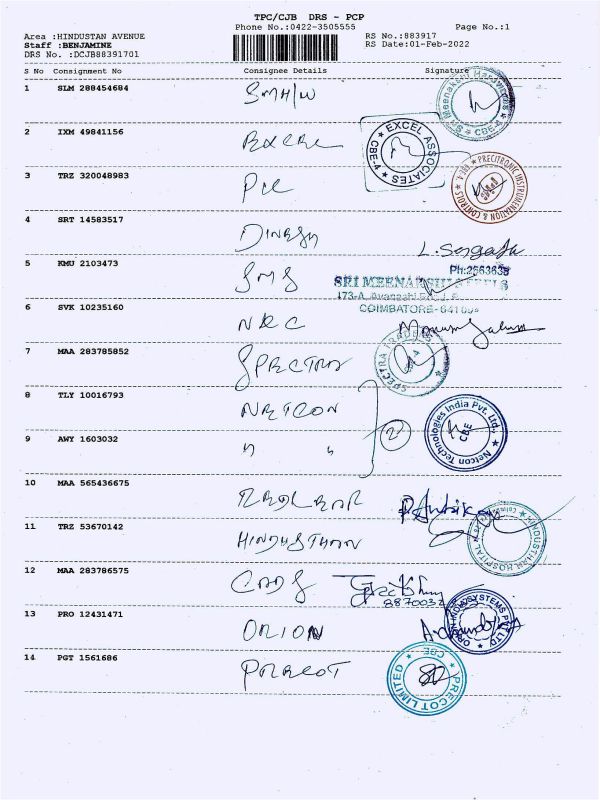 TPC/CJB DRS - PCP
Phone No.:0422-3505555
Page No.:1
Area :HINDUSTAN AVENUE
Staff :BENJAMINE
DRS No. :DCJB88391701
RS No.:883917
RS Date:01-Feb-2022
S No Consignment No Consignee Details Signature
1 SLM 288454684 SMH/W
Sri Meenakshi CBE-9
2 IXM 49841156 EXCEL
EXCEL ASSOCIATES CBE-4
3 TRZ 320048983 PIC
PRECITRONIC INSTRUMENTATION & CONTROLS
4 SRT 14583517 DINESH
5 KMU 2103473 SMS
Ph:2663638
SRI MEENAKSHI STEELS
173-A,
COIMBATORE-
6 SVK 10235160 NRC
7 MAA 283785852 SPECTRA
SPECTRA TRADERS
8 TLY 10016793 NETCON
2
Netcon Technologies India Pvt. Ltd., CBE
9 AWY 1603032 " "
10 MAA 565436675
11 TRZ 53670142 HINDUSTHAN
HINDUSTHAN HOSPITAL
12 MAA 283786575 CADS
13 PRO 12431471 ORION
14 PGT 1561686 PRECOT
PRECOT LIMITED CBE